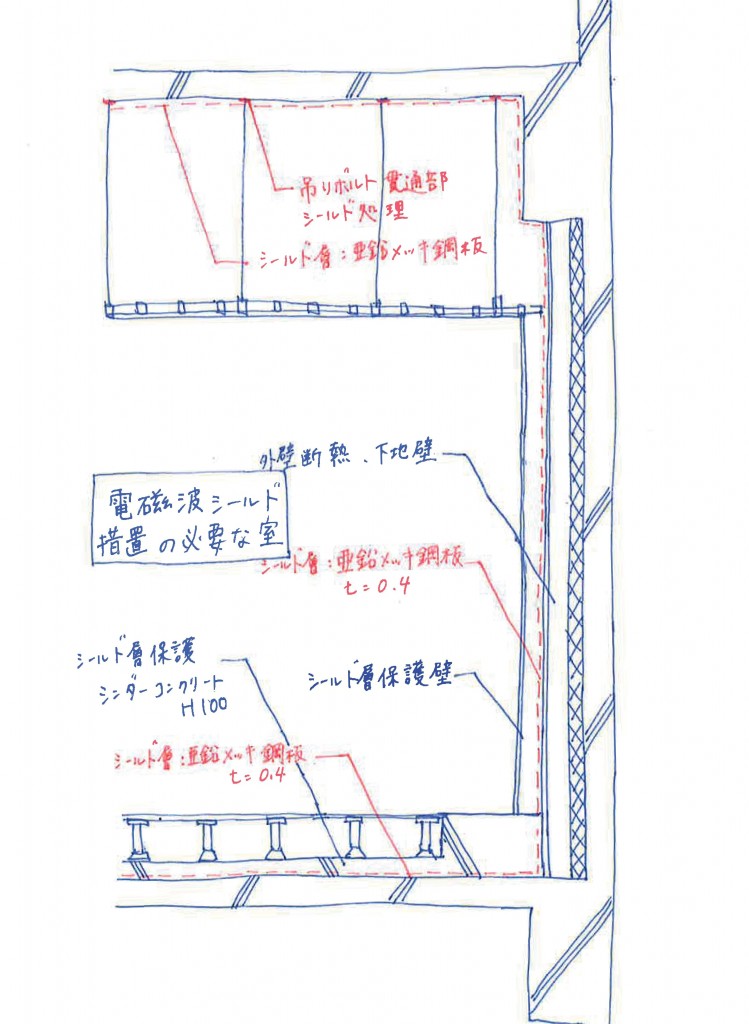 吊りボルト貫通部
シールド処理
シールド層：亜鉛メッキ鋼板
外壁断熱、下地壁
電磁波シールド
措置の必要な室
シールド層：亜鉛メッキ鋼板
t=0.4
シールド層保護
シンダーコンクリート
H100
シールド層保護壁
シールド層：亜鉛メッキ鋼板
t=0.4